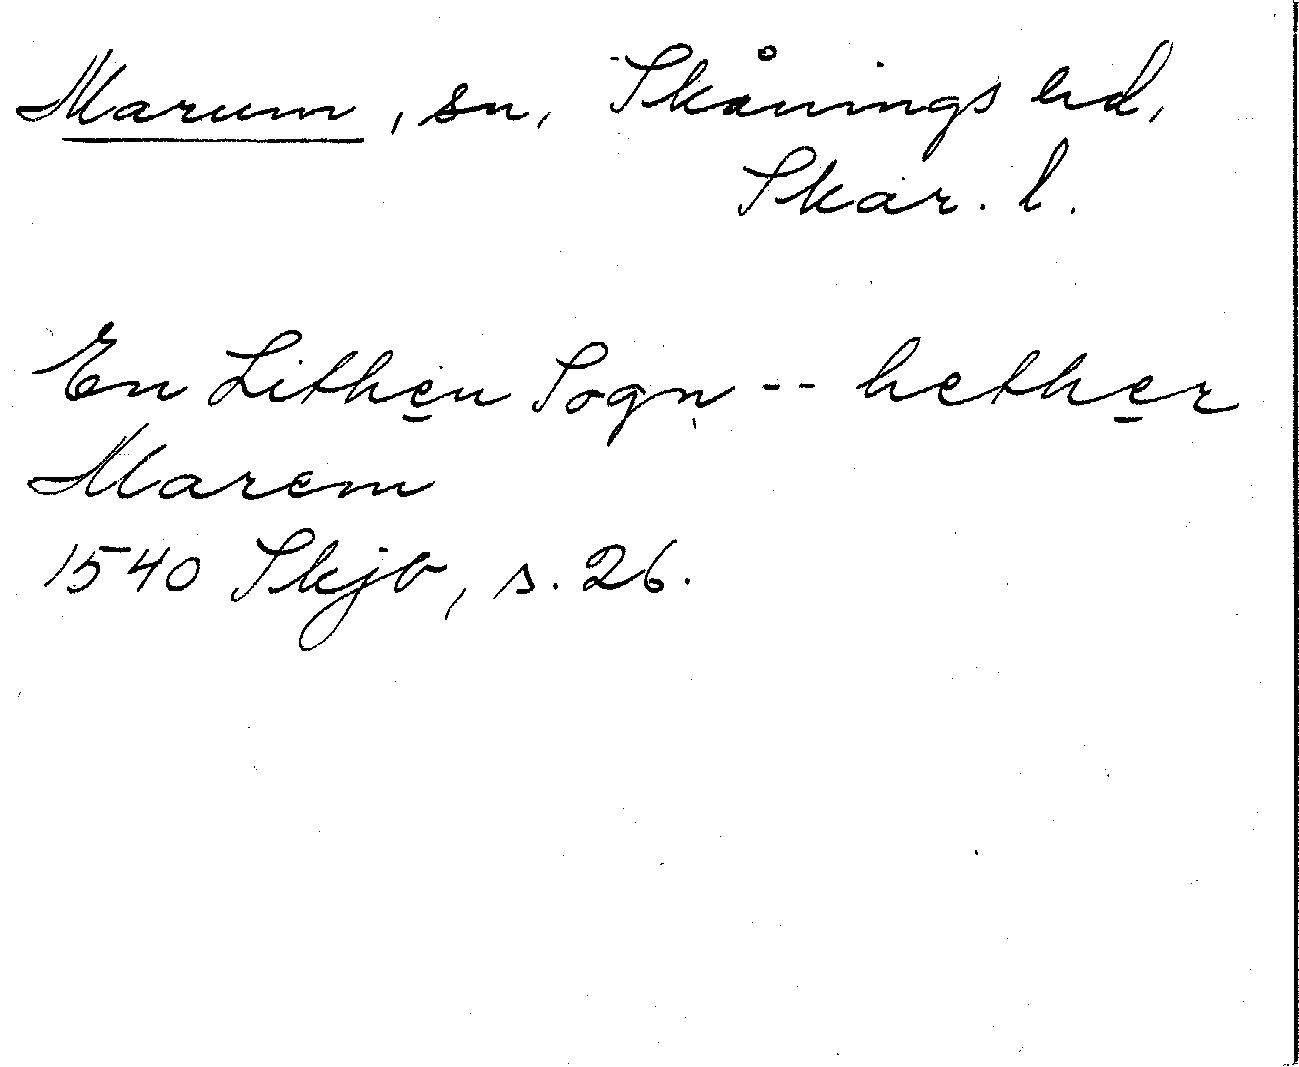 Marum, sn, Skånings hd,
Skar. l.
En Lithen Sogn -- hether
Marem
1540 Skjb, s. 26.